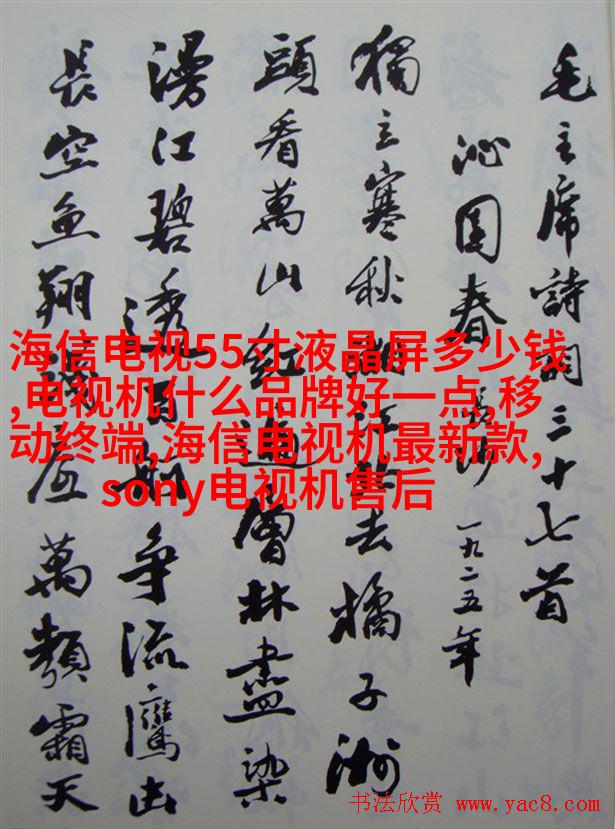 毛主席詩詞三十七首
沁園春 長沙 一九二五年
獨立寒秋湘江北去橘子洲
頭看萬山紅遍層林盡染
漫江碧透百舸争流鷹击
長空魚翔淺底萬類霜天
海信电视55寸液晶屏多少钱
,电视机什么品牌好一点,移
动终端,海信电视机最新款,
sony电视机售后
书法欣赏 www.yac8.com